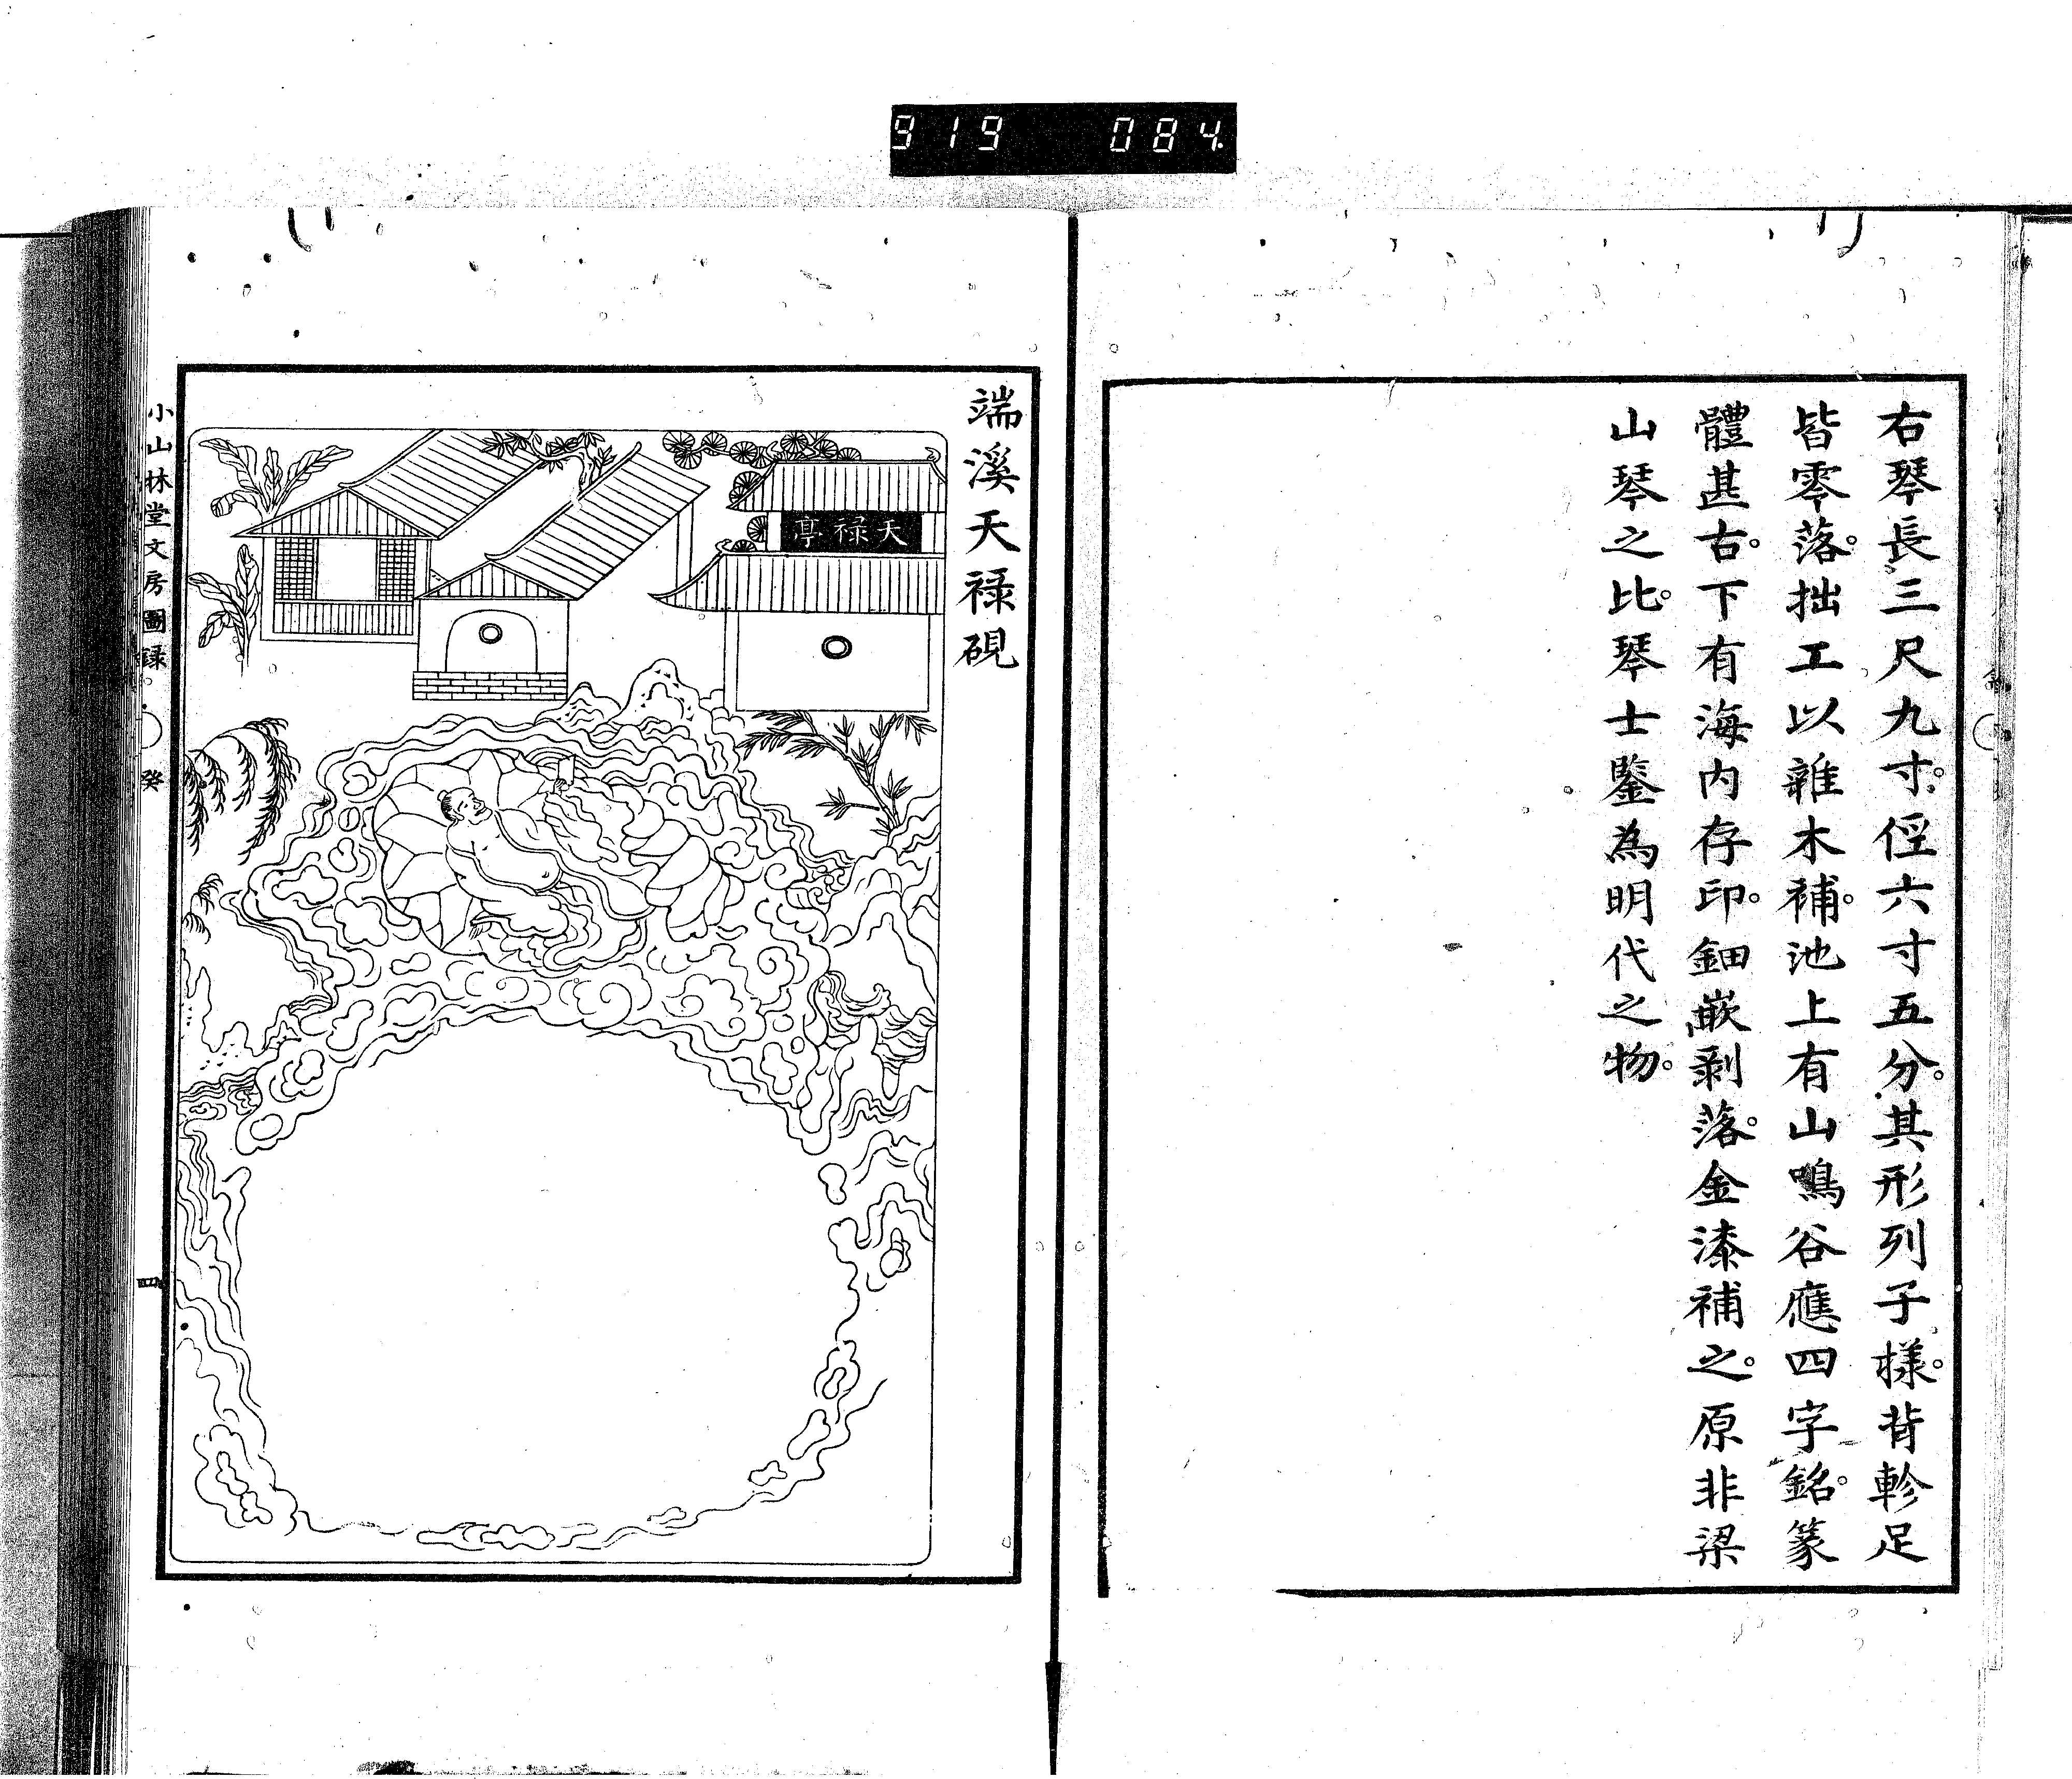 919 084
右琴長三尺九寸。俓六寸五分。其形列子樣。背軫足
皆零落。拙工以雜木補。池上有山鳴谷應四字銘。篆
體甚古。下有海内存印。鈿嵌剥落。金漆補之。原非梁
山琴之比。琴士鑒為明代之物。
端溪天禄硯
天禄亭
小山林堂文房圖録 癸
四